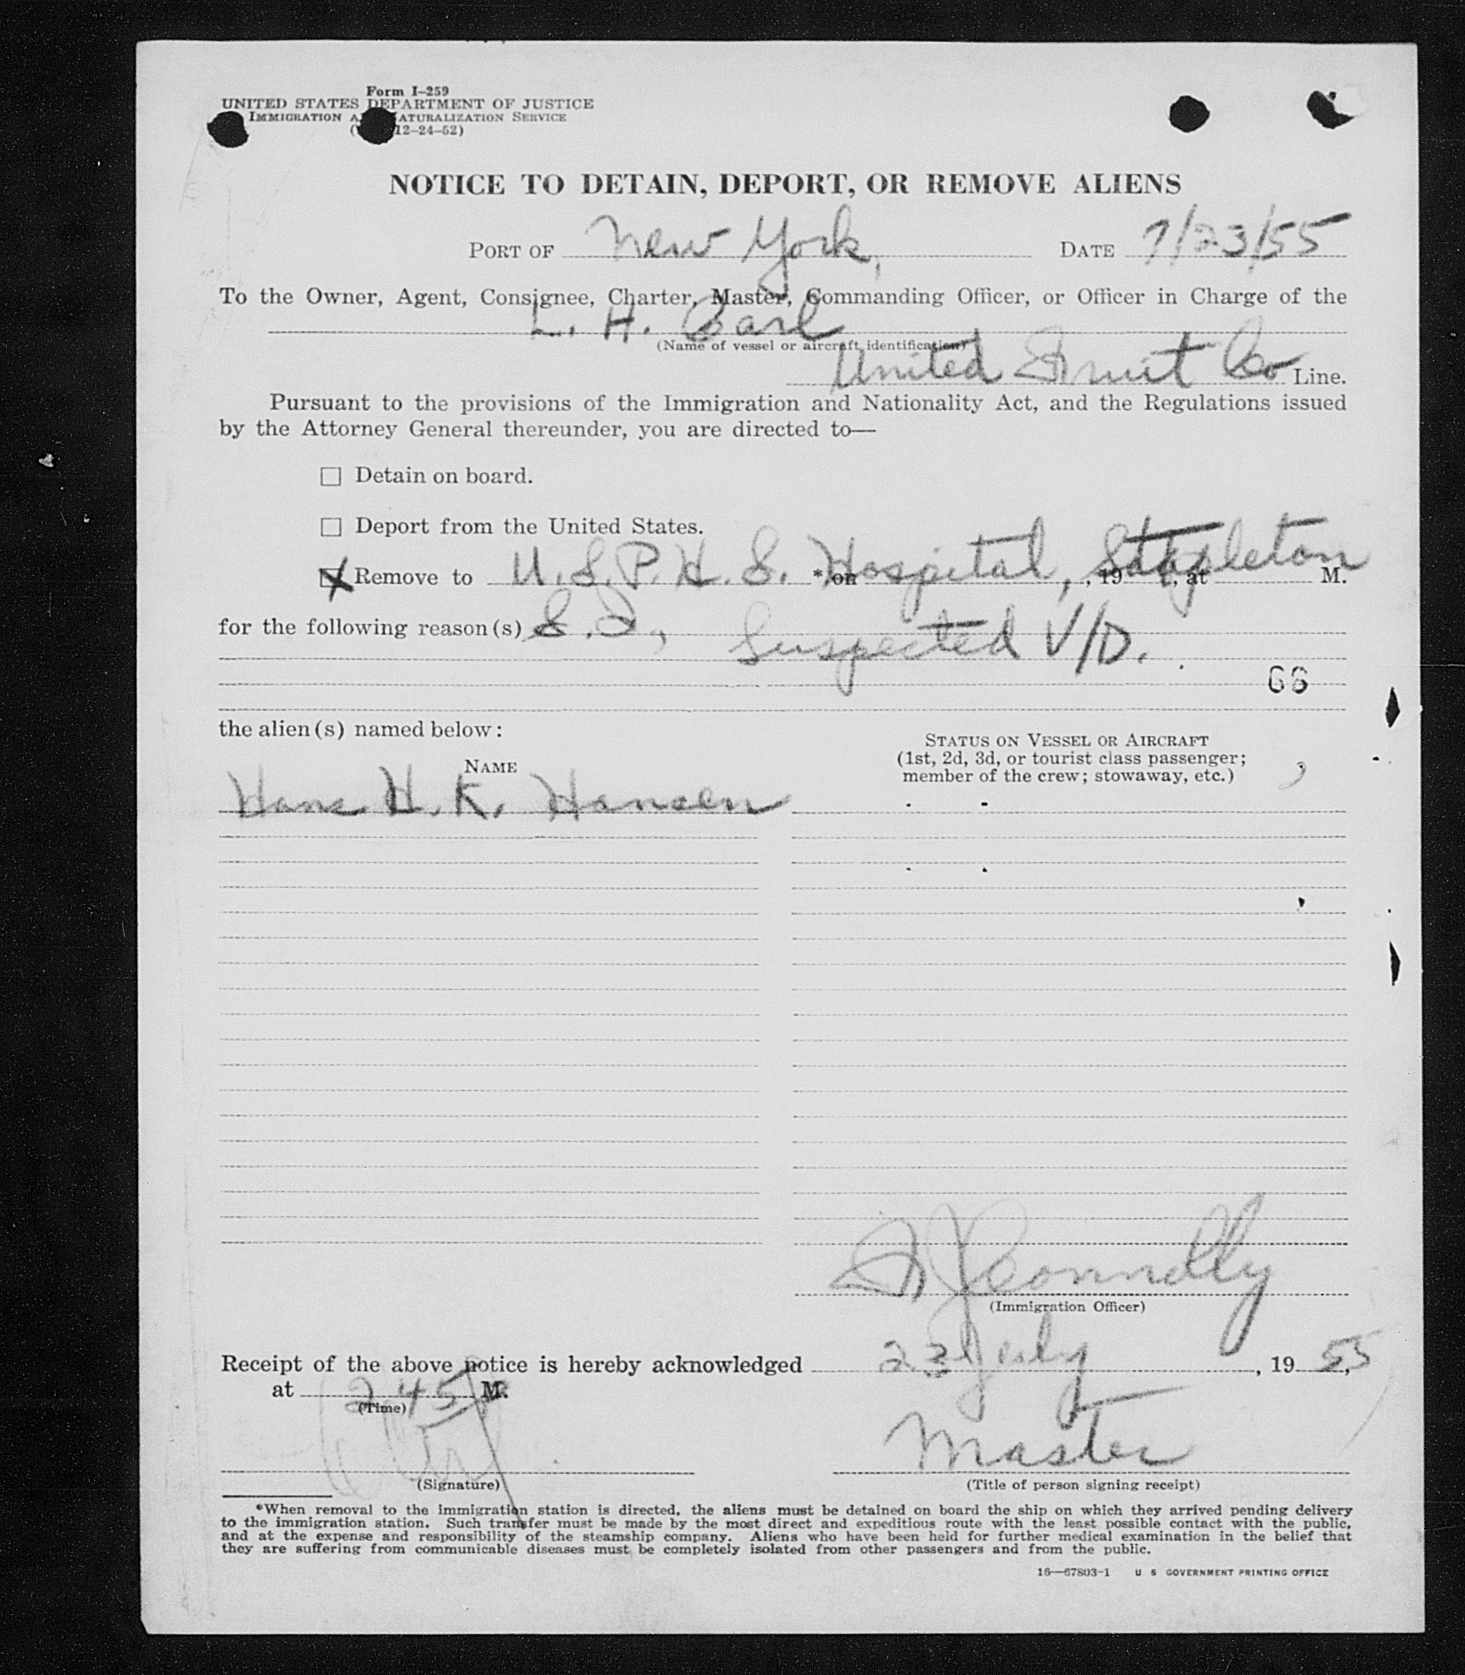 Form I-259
UNITED STATES DEPARTMENT OF JUSTICE
IMMIGRATION NATURALIZATION SERVICE
12-24-52)
NOTICE TO DETAIN, DEPORT, OR REMOVE ALIENS
PORT OF New York, DATE 7/23/55
To the Owner, Agent, Consignee, Charter, Master, Commanding Officer, or Officer in Charge of the
L. H. Carl
(Name of vessel or aircraft identification)
United Fruit Co Line.
Pursuant to the provisions of the Immigration and Nationality Act, and the Regulations issued
by the Attorney General thereunder, you are directed to—
☐ Detain on board.
☐ Deport from the United States.
☒ Remove to U.S.P.H.S. *on Hospital, Stapleton, 19 , at M.
for the following reason(s) S.I., Suspected V/D.
66
the alien(s) named below:
STATUS ON VESSEL OR AIRCRAFT
(1st, 2d, 3d, or tourist class passenger;
member of the crew; stowaway, etc.)
NAME
Hans H. K. Hansen
F J Connolly
(Immigration Officer)
Receipt of the above notice is hereby acknowledged 23 July, 19 55,
at 2 45 P M.
(Time)
Master
(Signature) (Title of person signing receipt)
*When removal to the immigration station is directed, the aliens must be detained on board the ship on which they arrived pending delivery
to the immigration station. Such transfer must be made by the most direct and expeditious route with the least possible contact with the public,
and at the expense and responsibility of the steamship company. Aliens who have been held for further medical examination in the belief that
they are suffering from communicable diseases must be completely isolated from other passengers and from the public.
16—67803-1 U S GOVERNMENT PRINTING OFFICE